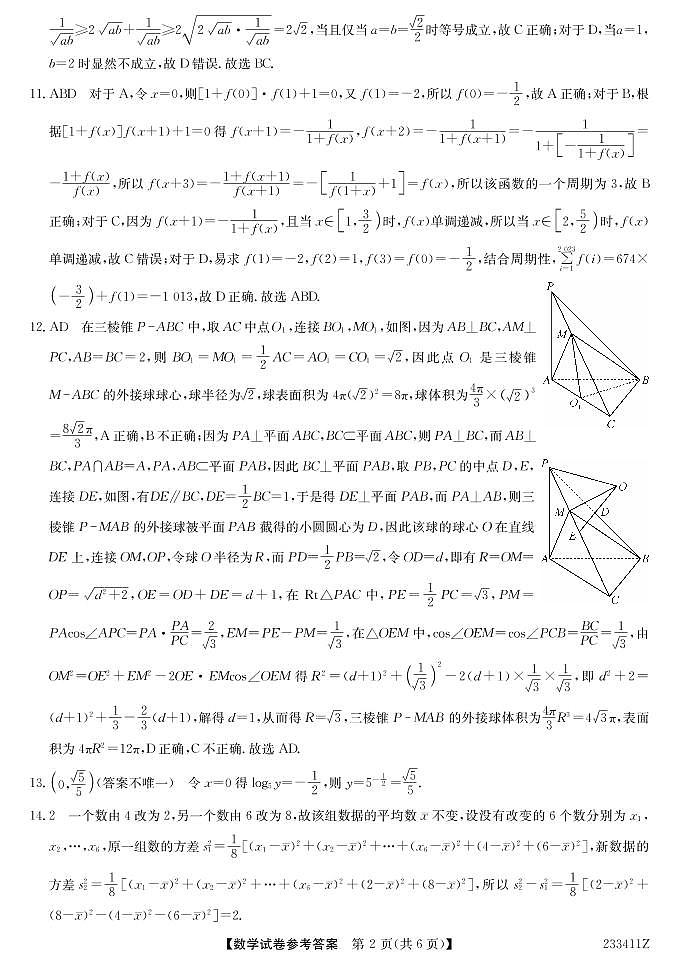 1/√ab ≥2√ab+1/√ab ≥2√(2√ab·1/√ab)=2√2,当且仅当a=b=√2/2时等号成立,故C正确;对于D,当a=1,
b=2时显然不成立,故D错误.故选BC.
11.ABD 对于A,令x=0,则[1+f(0)]·f(1)+1=0,又f(1)=-2,所以f(0)=-1/2,故A正确;对于B,根
据[1+f(x)]f(x+1)+1=0得f(x+1)=-1/(1+f(x)),f(x+2)=-1/(1+f(x+1))=-1/(1+[-1/(1+f(x))])=
-(1+f(x))/f(x),所以f(x+3)=-(1+f(x+1))/f(x+1)=-[1/f(1+x)+1]=f(x),所以该函数的一个周期为3,故B
正确;对于C,因为f(x+1)=-1/(1+f(x)),且当x∈[1,3/2)时,f(x)单调递减,所以当x∈[2,5/2)时,f(x)
单调递减,故C错误;对于D,易求f(1)=-2,f(2)=1,f(3)=f(0)=-1/2,结合周期性,∑(i=1→2 023)f(i)=674×
(-3/2)+f(1)=-1 013,故D正确.故选ABD.
12.AD 在三棱锥P-ABC中,取AC中点O₁,连接BO₁,MO₁,如图,因为AB⊥BC,AM⊥
PC,AB=BC=2,则BO₁=MO₁=1/2AC=AO₁=CO₁=√2,因此点O₁是三棱锥
M-ABC的外接球球心,球半径为√2,球表面积为4π(√2)²=8π,球体积为4π/3×(√2)³
=8√2π/3,A正确,B不正确;因为PA⊥平面ABC,BC⊂平面ABC,则PA⊥BC,而AB⊥
BC,PA∩AB=A,PA,AB⊂平面PAB,因此BC⊥平面PAB,取PB,PC的中点D,E,
连接DE,如图,有DE∥BC,DE=1/2BC=1,于是得DE⊥平面PAB,而PA⊥AB,则三
棱锥P-MAB的外接球被平面PAB截得的小圆圆心为D,因此该球的球心O在直线
DE上,连接OM,OP,令球O半径为R,而PD=1/2PB=√2,令OD=d,即有R=OM=
OP=√(d²+2),OE=OD+DE=d+1,在Rt△PAC中,PE=1/2PC=√3,PM=
PAcos∠APC=PA·PA/PC=2/√3,EM=PE-PM=1/√3,在△OEM中,cos∠OEM=cos∠PCB=BC/PC=1/√3,由
OM²=OE²+EM²-2OE·EMcos∠OEM得R²=(d+1)²+(1/√3)²-2(d+1)×1/√3×1/√3,即d²+2=
(d+1)²+1/3-2/3(d+1),解得d=1,从而得R=√3,三棱锥P-MAB的外接球体积为4π/3R³=4√3π,表面
积为4πR²=12π,D正确,C不正确.故选AD.
P
M
A
B
O₁
C
P
O
M
D
E
A
B
C
13.(0,√5/5)(答案不唯一) 令x=0得log₅y=-1/2,则y=5^(-1/2)=√5/5.
14.2 一个数由4改为2,另一个数由6改为8,故该组数据的平均数x̄不变,设没有改变的6个数分别为x₁,
x₂,…,x₆,原一组数的方差s₁²=1/8[(x₁-x̄)²+(x₂-x̄)²+…+(x₆-x̄)²+(4-x̄)²+(6-x̄)²],新数据的
方差s₂²=1/8[(x₁-x̄)²+(x₂-x̄)²+…+(x₆-x̄)²+(2-x̄)²+(8-x̄)²],所以s₂²-s₁²=1/8[(2-x̄)²+
(8-x̄)²-(4-x̄)²-(6-x̄)²]=2.
【数学试卷参考答案 第2页(共6页)】 233411Z